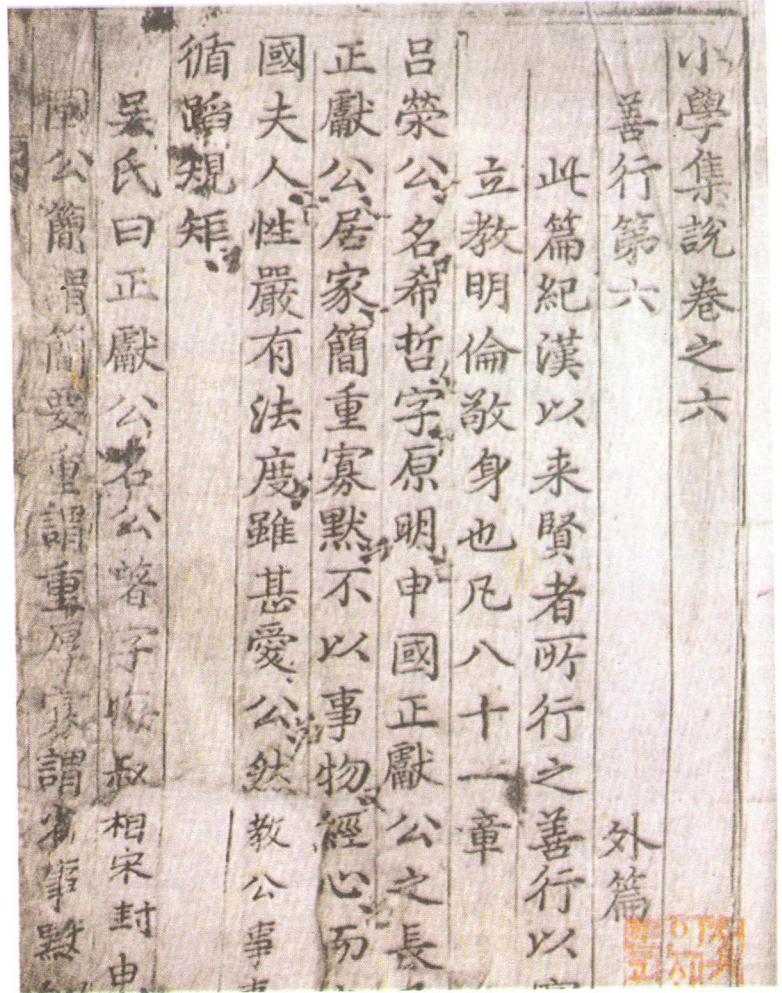 小學集說卷之六
善行第六 外篇
此篇紀漢以来賢者所行之善行以
立教明倫敬身也凡八十一章
呂滎公名希哲字原明申國正獻公之長
正獻公居家簡重寡默不以事物經心而
國夫人性嚴有法度雖甚愛公然教公事
循蹈規矩
吳氏曰正獻公名公著字晦叔相宋封申
國公簡謂簡要重謂重厚寡謂省事默